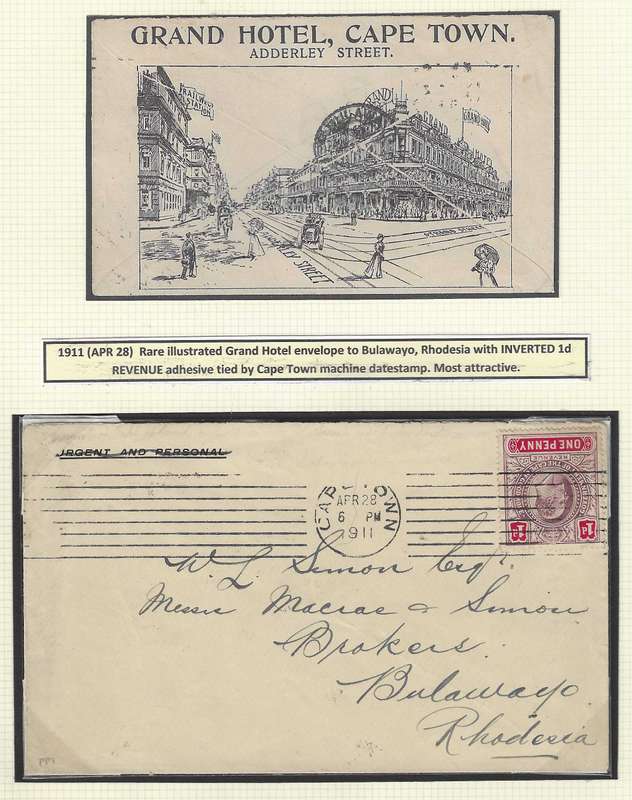 GRAND HOTEL, CAPE TOWN.
ADDERLEY STREET.
RAILWAY
STATION
GRAND
GRAND HOTEL
ADDERLEY STREET
1911 (APR 28) Rare illustrated Grand Hotel envelope to Bulawayo, Rhodesia with INVERTED 1d
REVENUE adhesive tied by Cape Town machine datestamp. Most attractive.
URGENT AND PERSONAL
ONE PENNY
REVENUE
1d 1d
CAPE TOWN
APR 28
6 PM
1911
W. L Simon Esqr.
Messrs Macrae & Simon
Brokers.
Bulawayo
Rhodesia
PP1